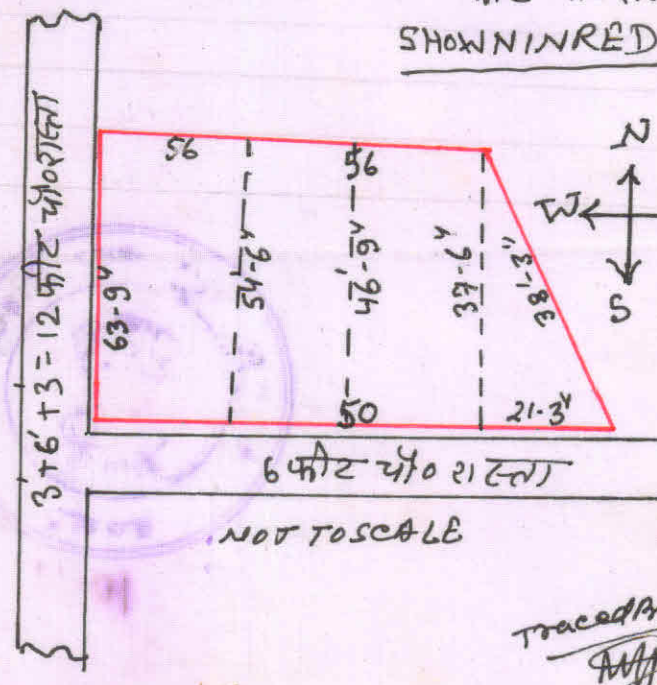 SHOWN IN RED
3+6'+3=12 फीट चौ० रास्ता
56
56
N
W
S
63-9"
54'-6"
46'-9"
37-6"
38'-3"
50
21-3"
6 फीट चौ० रास्ता
NOT TO SCALE
Traced